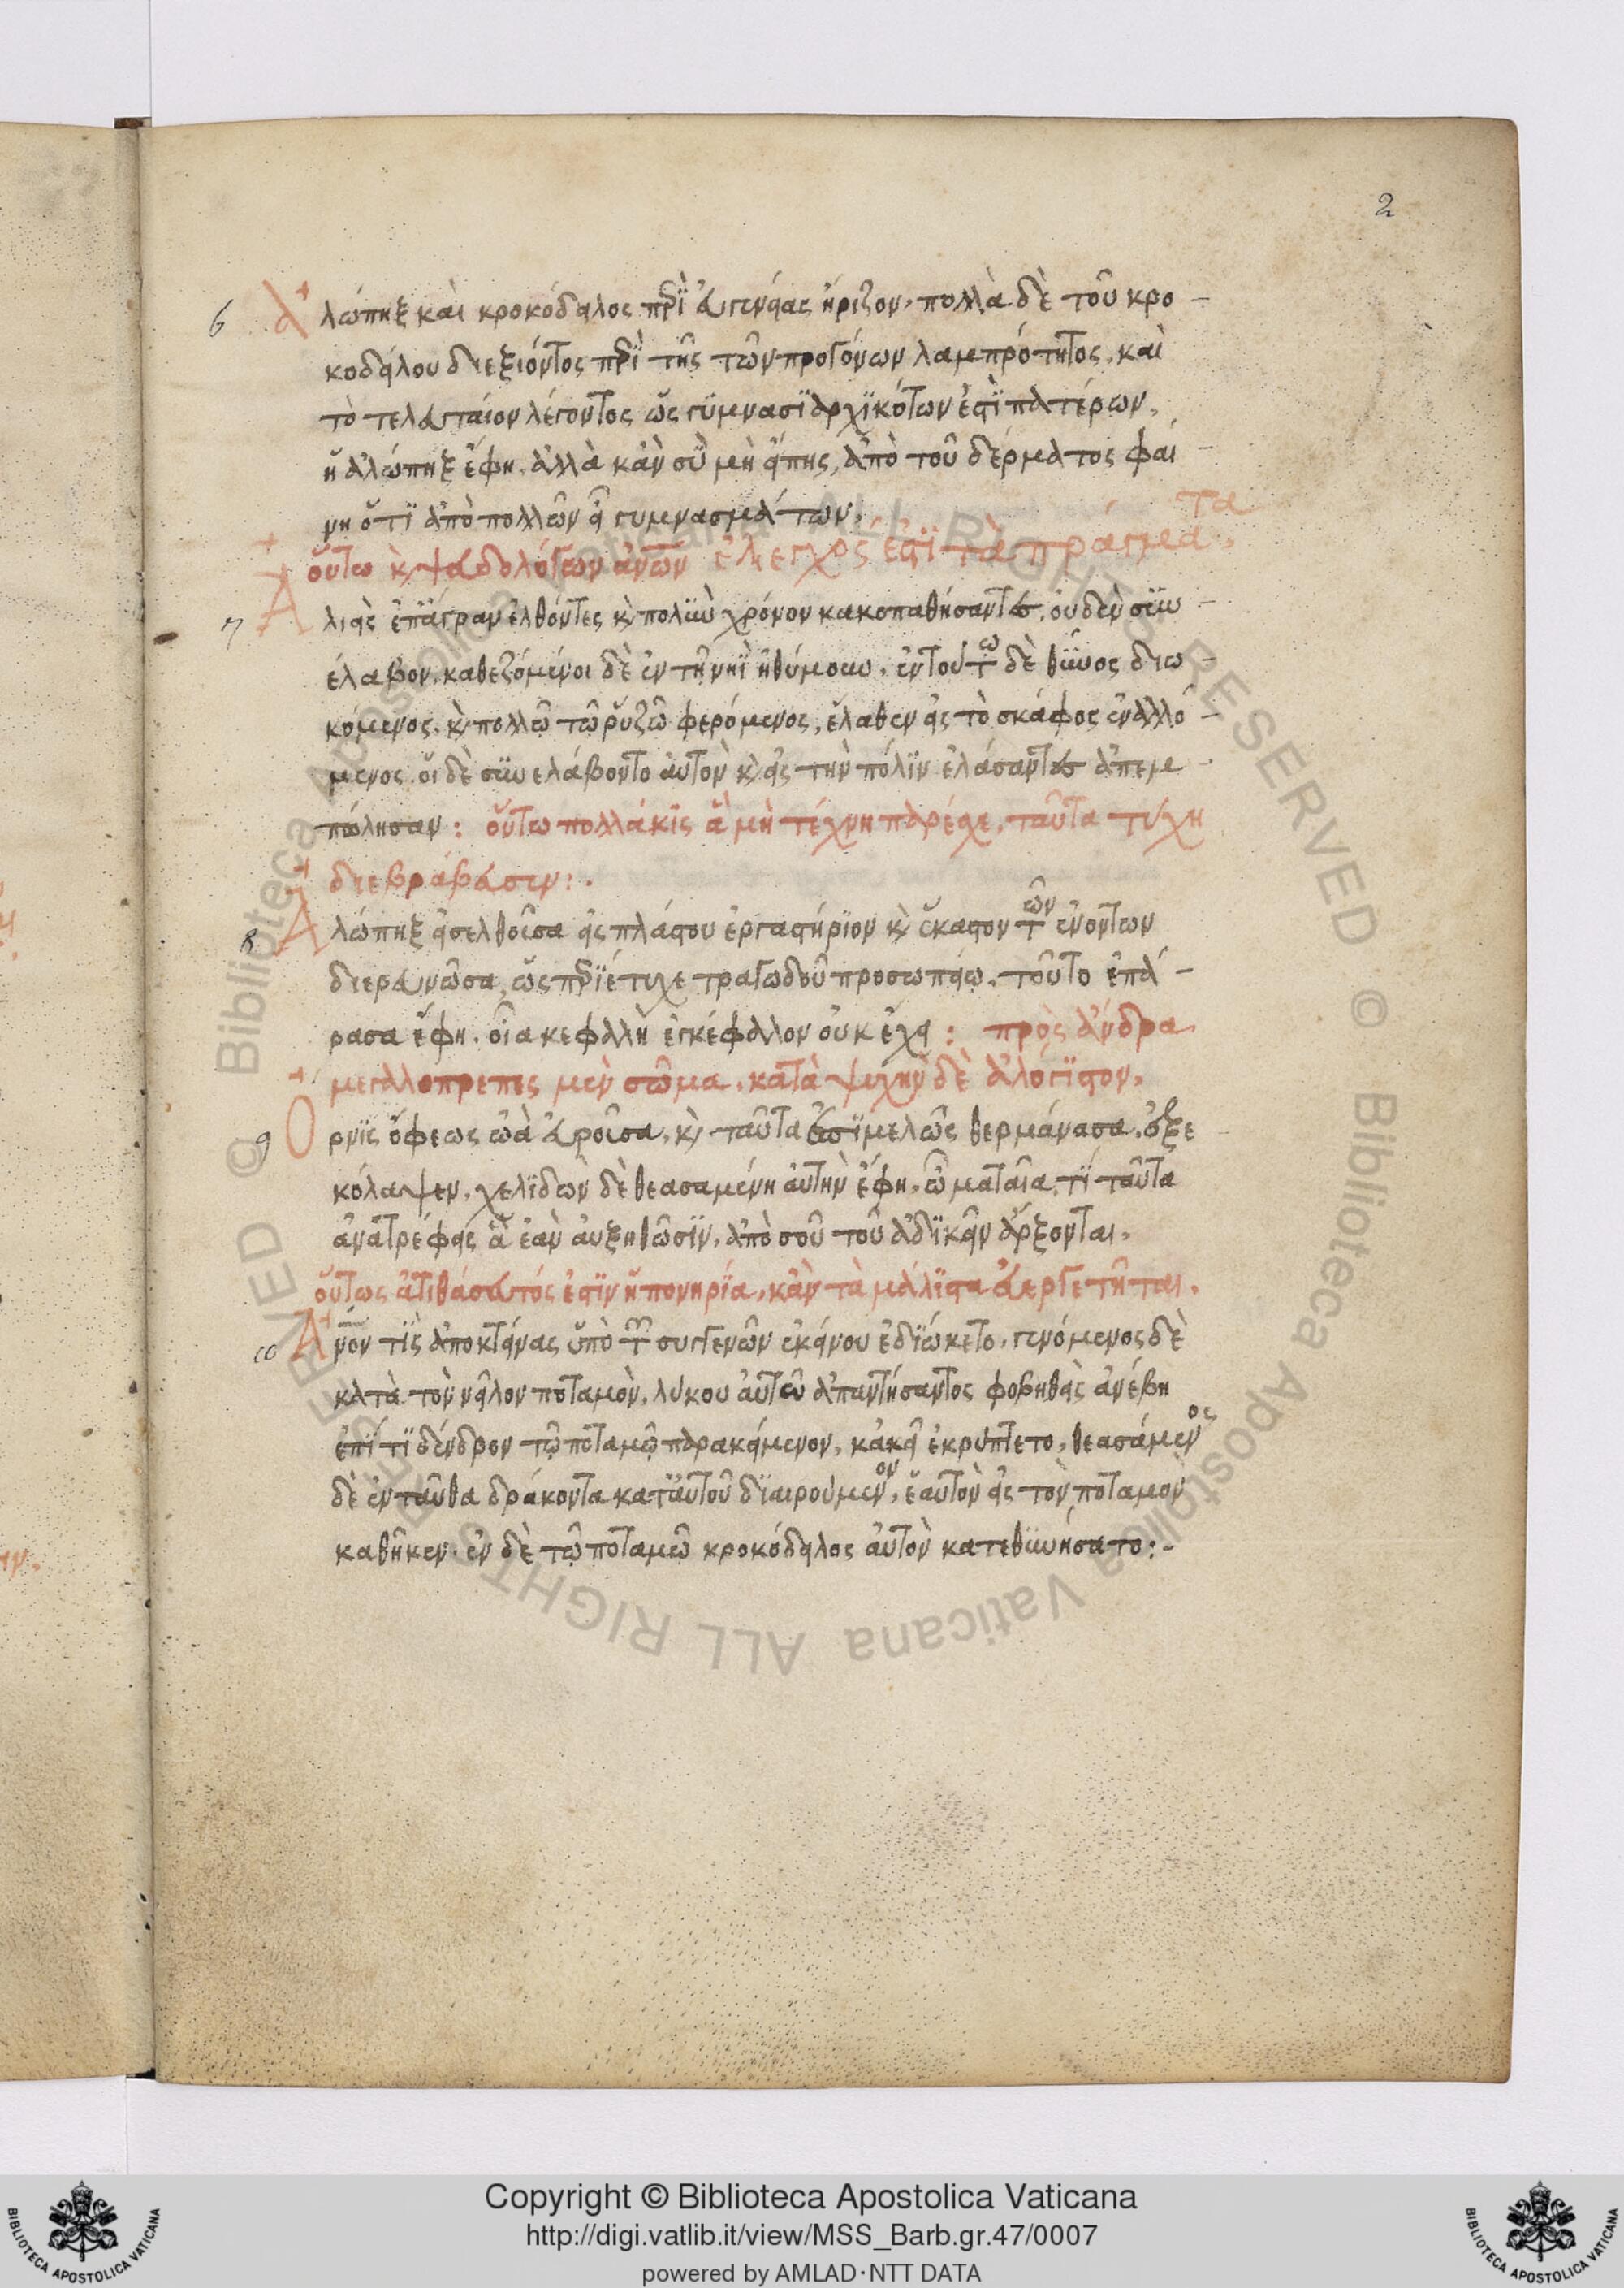 2
6 Ἀλώπηξ καὶ κροκόδειλος περὶ εὐγενείας ἤριζον, πολλὰ δὲ τοῦ κρο-
κοδείλου διεξιόντος περὶ τῆς τῶν προγόνων λαμπρότητος, καὶ
τὸ τελευταῖον λέγοντος ὡς γϋμνασϊαρχϊκότων ἐστὶ πατέρων,
ἡ ἀλώπηξ ἔφη. ἀλλὰ κἂν σὺ μὴ εἴπης, ἀπὸ τοῦ δέρματος φαί-
νη ὅτι ἀπὸ πολλῶν εἶ γυμνασμάτων,
οὕτω κ ψευδολόγων ἀνων ἔλεγχός ἐστι τὰ πράγματα,
7 Ἁλιεῖς ἐπ' ἄγραν ἐλθόντες κ πολὺν χρόνον κακοπαθήσαντες, οὐδὲν συν-
έλαβον, καθεζόμενοι δὲ ἐν τῇ νηῒ ἠθύμουν, ἐν τούτω δὲ θύνος διω-
κόμενος, κ πολλῶ τῶ ῥύζω φερόμενος, ἔλαθεν εἰς τὸ σκάφος ἐναλλό-
μενος, οἱ δὲ συνελάβοντο αὐτὸν κ εἰς τὴν πόλιν ἐλάσαντες ἀπεμ-
πώλησαν: οὕτω πολλάκις ἃ μὴ τέχνη παρέχε, ταῦτα τύχη
διεβράβευσεν:.
8 Ἀλώπηξ εἰσελθοῦσα εἰς πλάστου ἐργαστήριον κ ἕκαστον τῶν ἐνόντων
διερευνῶσα, ὡς περιέτυχε τραγωδοῦ προσωπείω, τοῦτο ἐπά-
ρασα ἔφη. οἵα κεφαλλὴ ἐγκέφαλλον οὐκ ἔχει: πρὸς ἄνδρα
μεγαλοπρεπες μὲν σῶμα, κατὰ ψυχὴν δὲ ἀλόγϊστον,
9 Ὄρνϊς ὄφεως ὠὰ εὑροῦσα, κ ταῦτα ἐπϊμελῶς θερμάνασα, ἐξε
κόλαψεν, χελϊδὼν δὲ θεασαμένη αὐτὴν ἔφη, ὦ ματαῖα, τί ταῦτα
ἀνατρέφεις ἃ ἐὰν αὐξηθῶσϊν, ἀπὸ σοῦ τοῦ ἀδϊκεῖν ἄρξονται,
οὕτως ἀτιθάσευτός ἐστιν ἡ πονηρία, κἂν τὰ μάλιστα εὐεργετῆται.
10 Ἀνόν τϊς ἀποκτείνας ὑπὸ τῶν συγγενῶν ἐκείνου ἐδϊώκετο, γενόμενος δὲ
κατὰ τὸν νεῖλον ποταμὸν, λύκου αὐτῶ ἀπαντήσαντος φοβηθεὶς ἀνέβη
ἐπί τι δένδρον τῶ ποταμῶ παρακείμενον, κἀκεῖ ἐκρύπτετο, θεασάμενος
δὲ ἐνταῦθα δράκοντα κατ' αὐτοῦ δϊαιρούμενον, ἑαυτὸν εἰς τὸν ποταμὸν
καθῆκεν. ἐν δὲ τῶ ποταμῶ κροκόδειλος αὐτὸν κατεθϋνήσατο:-
Copyright © Biblioteca Apostolica Vaticana
http://digi.vatlib.it/view/MSS_Barb.gr.47/0007
powered by AMLAD·NTT DATA
BIBLIOTECA APOSTOLICA VATICANA
BIBLIOTECA APOSTOLICA VATICANA
© Biblioteca Apostolica Vaticana ALL RIGHTS RESERVED © Biblioteca Apostolica Vaticana ALL RIGHTS RESERVED